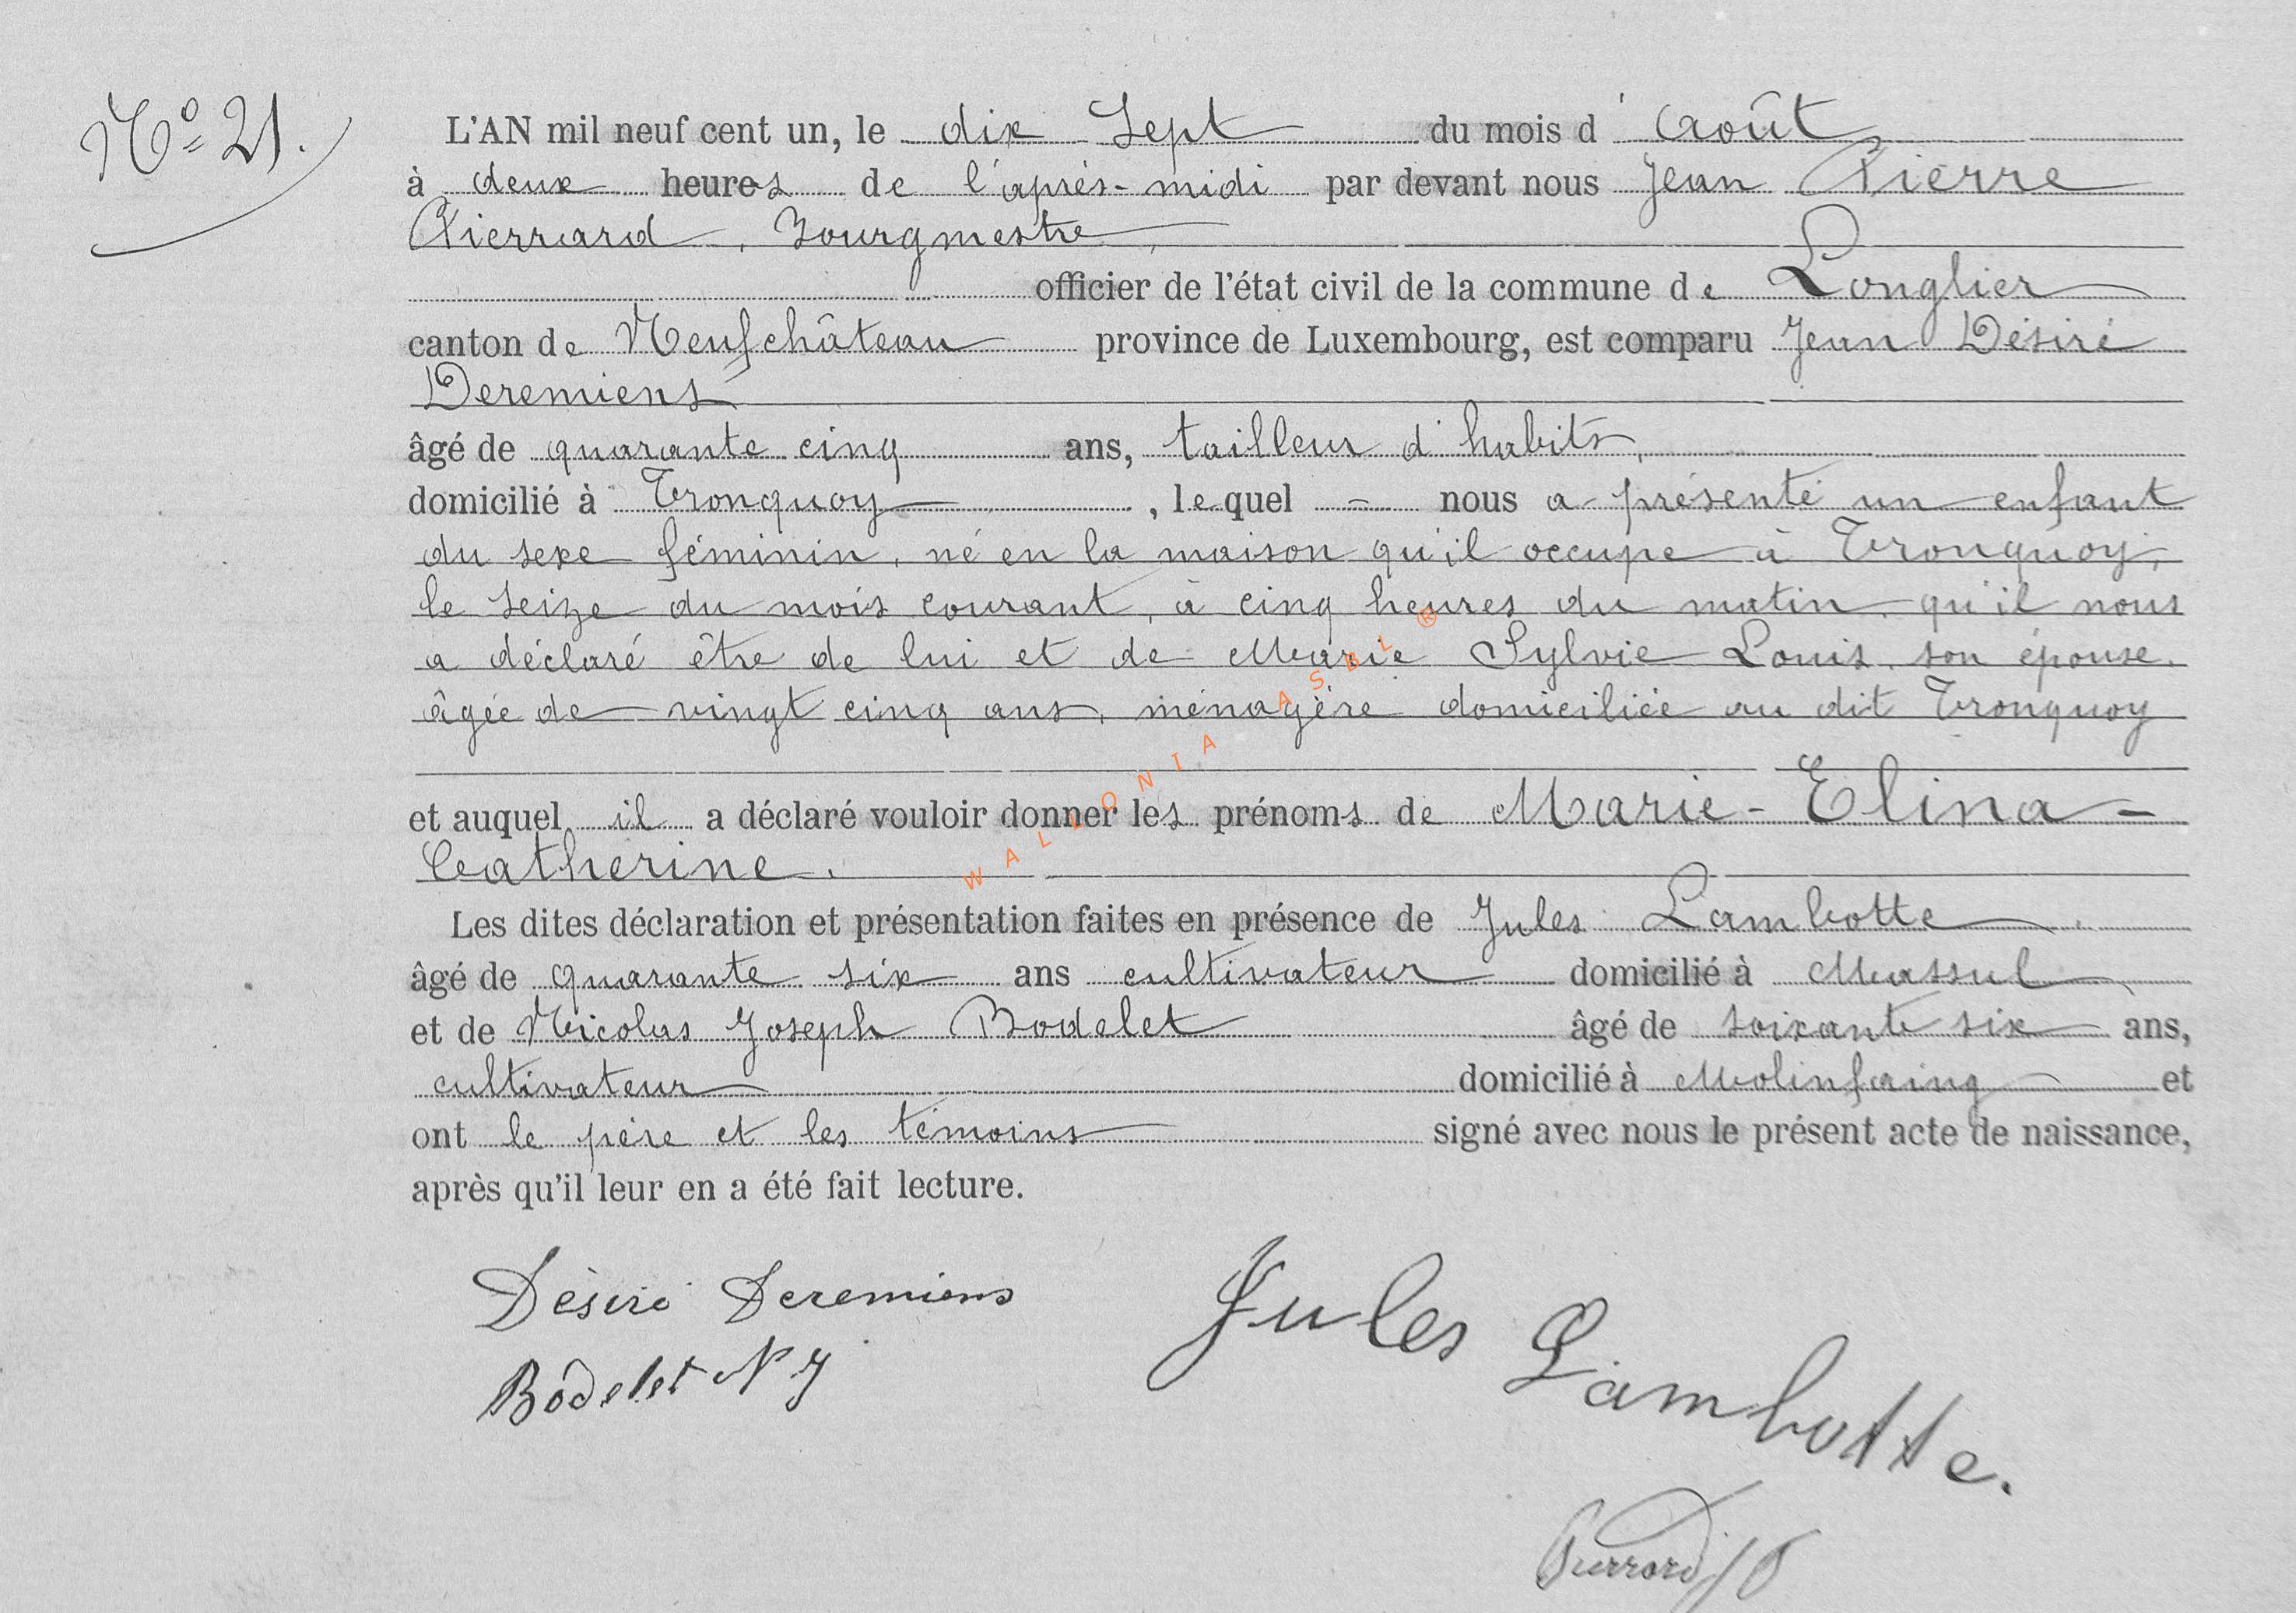 N° 21.
L'AN mil neuf cent un, le dix Sept du mois d'Août
à deux heures de l'après-midi par devant nous Jean Pierre
Pierrard, Bourgmestre,
officier de l'état civil de la commune de Longlier
canton de Neufchâteau province de Luxembourg, est comparu Jean Désiré
Deremiens
âgé de quarante cinq ans, tailleur d'habits,
domicilié à Tronquoy, lequel = nous a présenté un enfant
du sexe féminin, né en la maison qu'il occupe à Tronquoy,
le seize du mois courant, à cinq heures du matin, qu'il nous
a déclaré être de lui et de Marie Sylvie Louis, son épouse,
âgée de vingt cinq ans, ménagère domiciliée au dit Tronquoy
et auquel il a déclaré vouloir donner les prénoms de Marie-Elina-
Catherine.
Les dites déclaration et présentation faites en présence de Jules Lambotte
âgé de quarante six ans cultivateur domicilié à Massul
et de Nicolas Joseph Bodelet âgé de soixante six ans,
cultivateur domicilié à Molinfaing et
ont le père et les témoins signé avec nous le présent acte de naissance,
après qu'il leur en a été fait lecture.
Désiré Deremiens
Jules Lambotte.
Bôdelet N J
Pierrard JP
WALLONIA ASBL ®